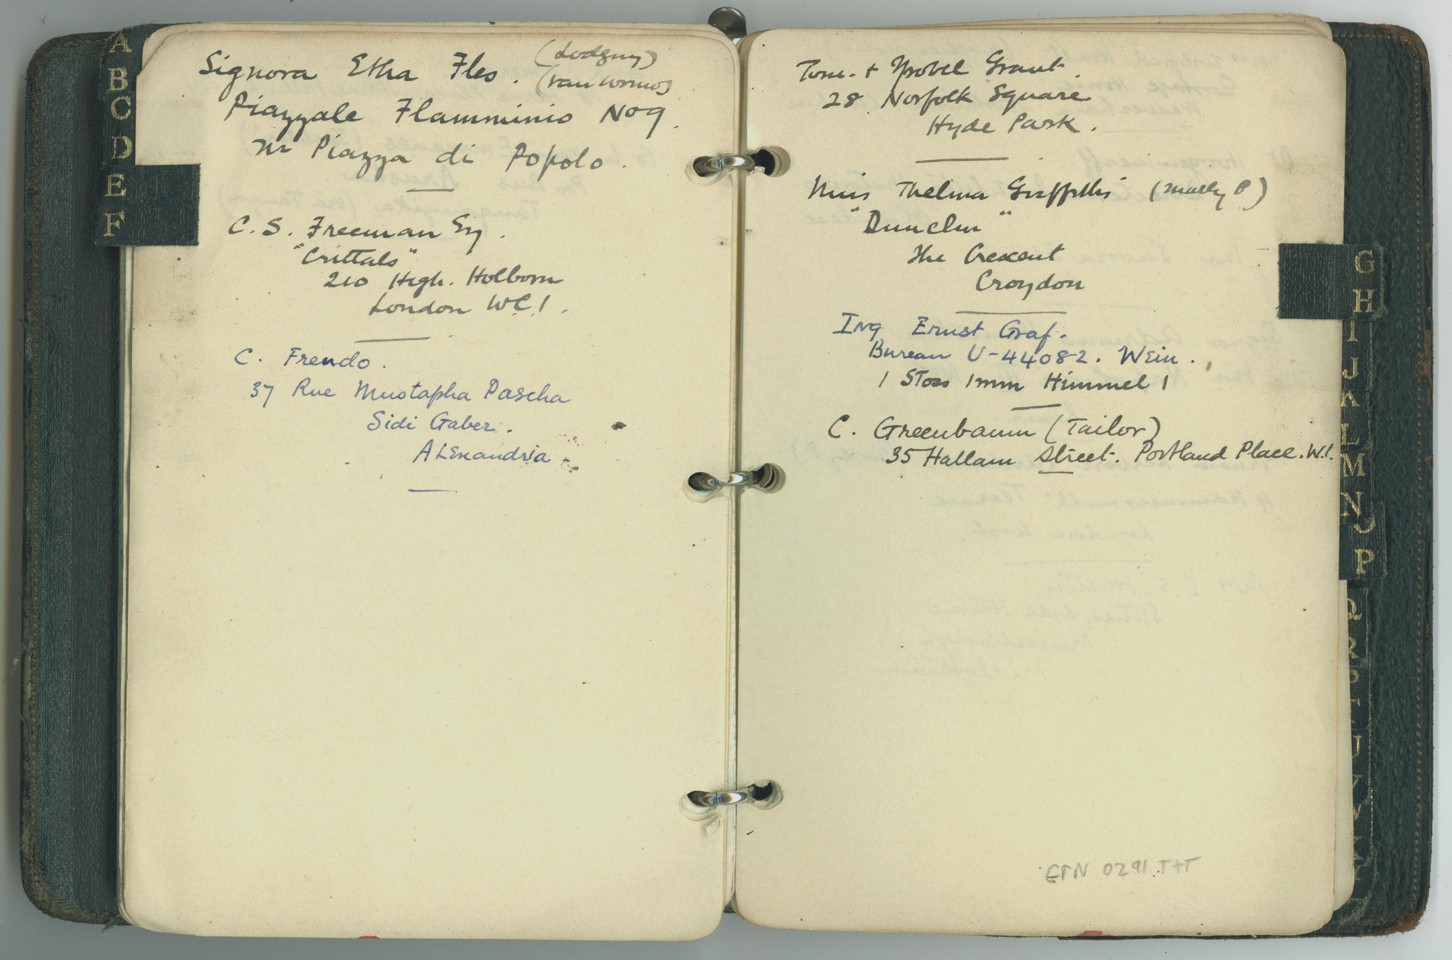 A
B
C
D
E
F
Signora Etha Fles. (Lodging)
(van Wornos)
Piazzale Flamminio No 9.
nr Piazza di Popolo.
C. S. Freeman Esq.
"Crittals"
210 High. Holborn
London WC1.
C. Frendo.
37 Rue Mustapha Pascha
Sidi Gaber.
ALExandria.
Tom. + Ysobel Grant.
28 Norfolk Square
Hyde Park.
Miss Thelma Griffiths (Molly P)
"Dunelm"
The Crescent
Croydon
Ing Ernst Graf.
Bureau U-44082. Wein.
1 Stoss 1mm Himmel 1
C. Greenbaum (Tailor)
35 Hallam Street. Portland Place. W.1.
ETN 0291.TXT
G
H
I
J
K
L
M
N
O
P
Q
R
S
T
U
V
W